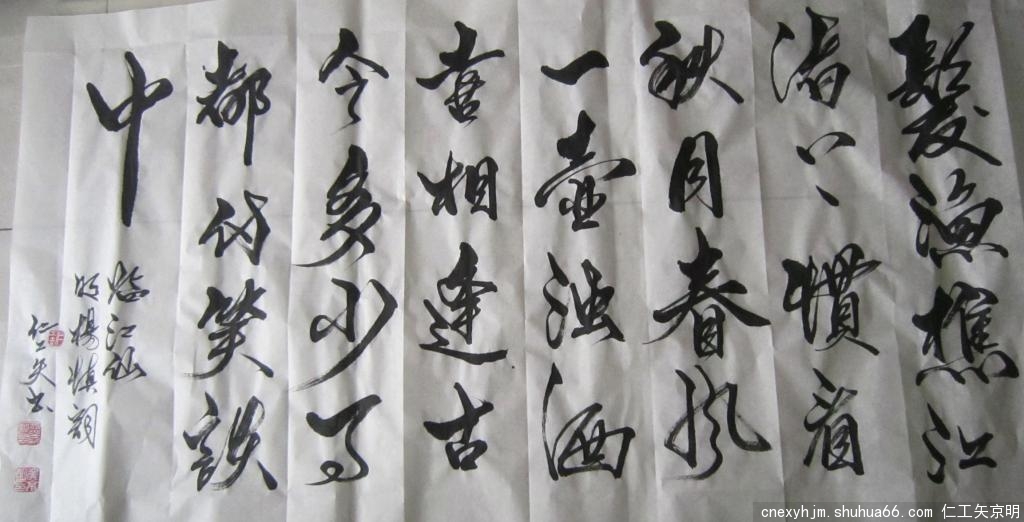 髮漁樵江
渚上慣看
秋月春風
一壺濁酒
喜相逢古
今多少事
都付笑談
中
臨江仙
明楊慎詞
仁工矢书
cnexyhjm.shuhua66.com 仁工矢京明